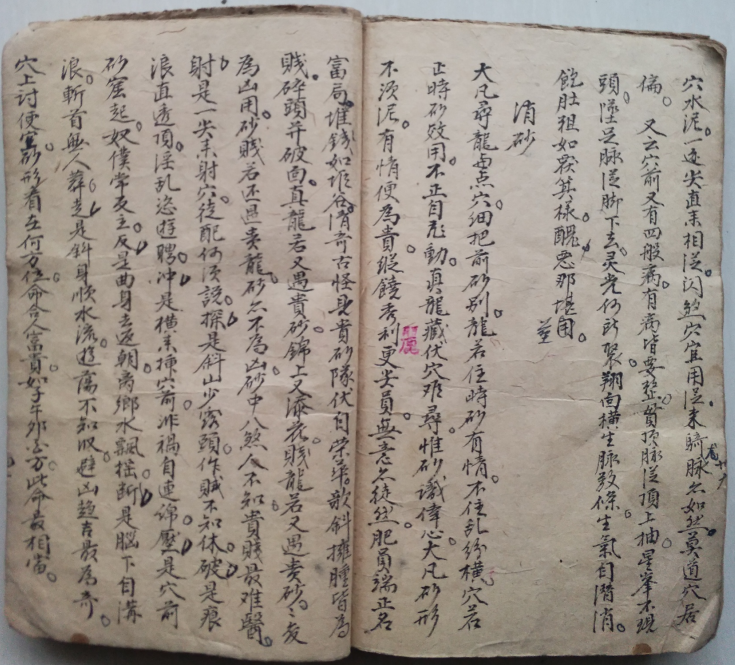 穴水泥。一边尖直來相從。闪煞穴宜用從來騎脉亦如然。莫道穴居
偏。又云穴前又有四般病。有病皆要整。貫頂脉從頂上抽。星峯不現
頭。墜足脉從脚下去。灵光何所聚。翔向橫生脉数條。生氣自潛消。
飽肚粗如覆箕樣。醜恶那堪用。
消砂
大凡尋龍与点穴。细把前砂别。龍若住時砂有情。不住乱紛橫。穴若
正時砂效用。不正自飛動。真龍藏伏穴难尋。惟砂識偉心。大凡砂形
不須泥。有情便為貴。縱饒秀利更尖員。無意亦徒然。肥員端正名
麗
富局。堆錢如堆谷。清奇古怪是貴砂。隊伏自荣華。歌斜擁腫皆為
賤。碎頭并破面。真龍若又遇貴砂。錦上又添花。賤龍若又遇贵砂。砂反
為凶用。砂賤若还遇贵龍。砂亦不為凶。砂中八煞人不知。貴賤最难醫。
射是一尖來射穴。徒配何須說。探是斜山少露頭。作贼不知休。破是痕
浪直透頂。淫乱恣遊聘。冲是橫來揷穴前。沖禍自連綿。壓是穴前
砂窟起。奴僕常友主。反是曲身去返朝。离鄉水飄摇。断是脑下自溝
浪。斬首無人葬。走是斜身順水流。遊蕩不知收。避凶趋吉最為奇。
穴上討便宜。砂形看在何方位。命合人富貴。如子午卯酉方。此命最相當。